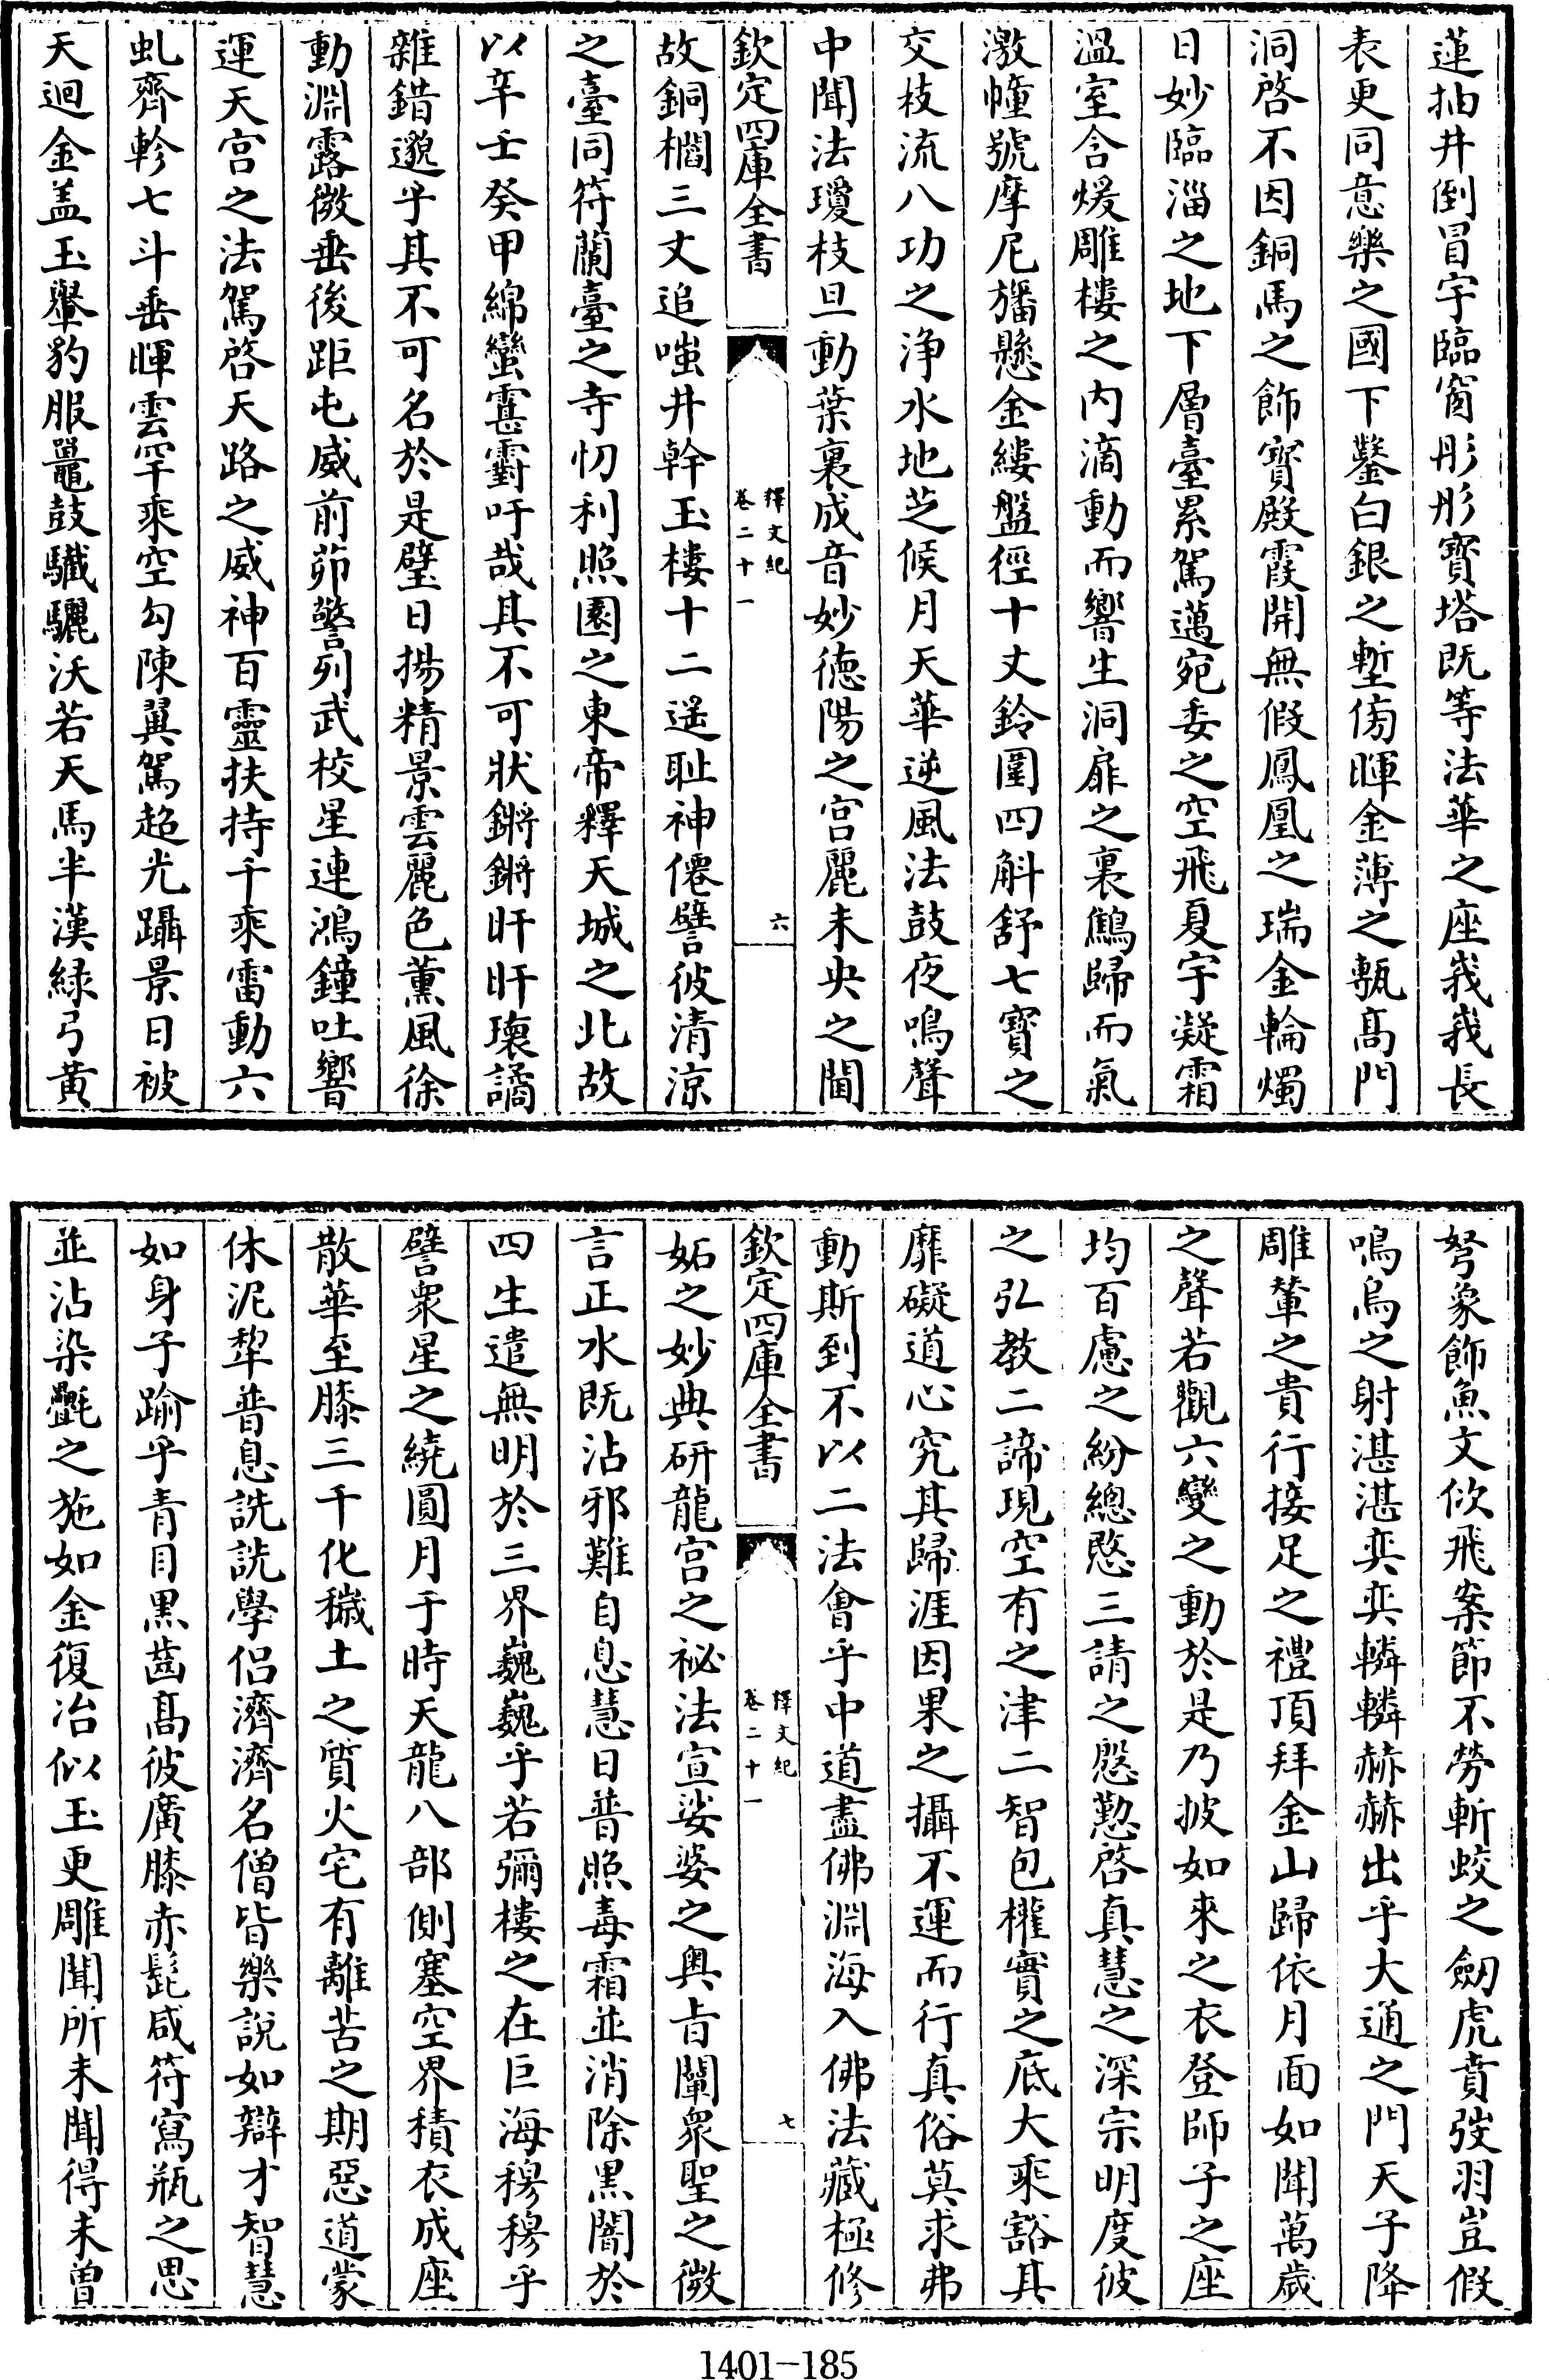 蓮抽井倒冒宇臨窗彤彤寳塔既等法華之座峩峩長
表更同意樂之國下鑿白銀之塹傍暉金薄之甎髙門
洞啓不因銅馬之飾寳殿霞開無假鳳凰之瑞金輪燭
日妙臨淄之地下層臺累駕邁宛委之空飛夏宇凝霜
溫室含煖雕樓之内滴動而響生洞扉之裏鷦歸而氣
激幢號摩尼旛懸金縷盤徑十丈鈴圍四斛舒七寳之
交枝流八功之浄水地芝候月天華逆風法鼓夜鳴聲
中聞法瓊枝旦動葉裏成音妙徳陽之宫麗未央之闥
欽定四庫全書
釋文紀
卷二十一
六
故銅櫩三丈追嗤井幹玉樓十二遥耻神僊譬彼清涼
之臺同符蘭臺之寺忉利照園之東帝釋天城之北故
以辛壬癸甲綿蠻霮䨴吁哉其不可狀鏘鏘旰旰瓌譎
雜錯邈乎其不可名於是璧日揚精景雲麗色薰風徐
動淵露微垂後距屯威前茆警列武校星連鴻鐘吐響
運天宫之法駕啓天路之威神百靈扶持千乘雷動六
虬齊軫七斗垂暉雲罕乘空勾陳翼駕超光躡景日被
天迴金盖玉轝豹服鼉鼓驖驪沃若天馬半漢緑弓黄
弩象飾魚文佽飛案節不勞斬蛟之劒虎賁弢羽豈假
鳴烏之射湛湛奕奕轔轔赫赫出乎大通之門天子降
雕輦之貴行接足之禮頂拜金山歸依月面如聞萬嵗
之聲若觀六變之動於是乃披如來之衣登師子之座
均百慮之紛總愍三請之慇懃啓真慧之深宗明度彼
之弘教二諦現空有之津二智包權實之底大乘豁其
靡礙道心究其歸涯因果之攝不運而行真俗莫求弗
動斯到不以二法㑹乎中道盡佛淵海入佛法藏極修
欽定四庫全書
釋文紀
卷二十一
七
妬之妙典研龍宫之祕法宣娑婆之奥㫖闡衆聖之微
言正水既沾邪難自息慧日普照毒霜並消除黒闇於
四生遣無明於三界巍巍乎若彌樓之在巨海穆穆乎
譬衆星之繞圓月于時天龍八部側塞空界積衣成座
散華至膝三千化穢土之質火宅有離苦之期惡道蒙
休泥犂普息詵詵學侣濟濟名僧皆樂說如辯才智慧
如身子踰乎青目黒齒髙彼廣膝赤髭咸符寫瓶之思
並沾染㲲之施如金復冶似玉更雕聞所未聞得未曽
1401-185